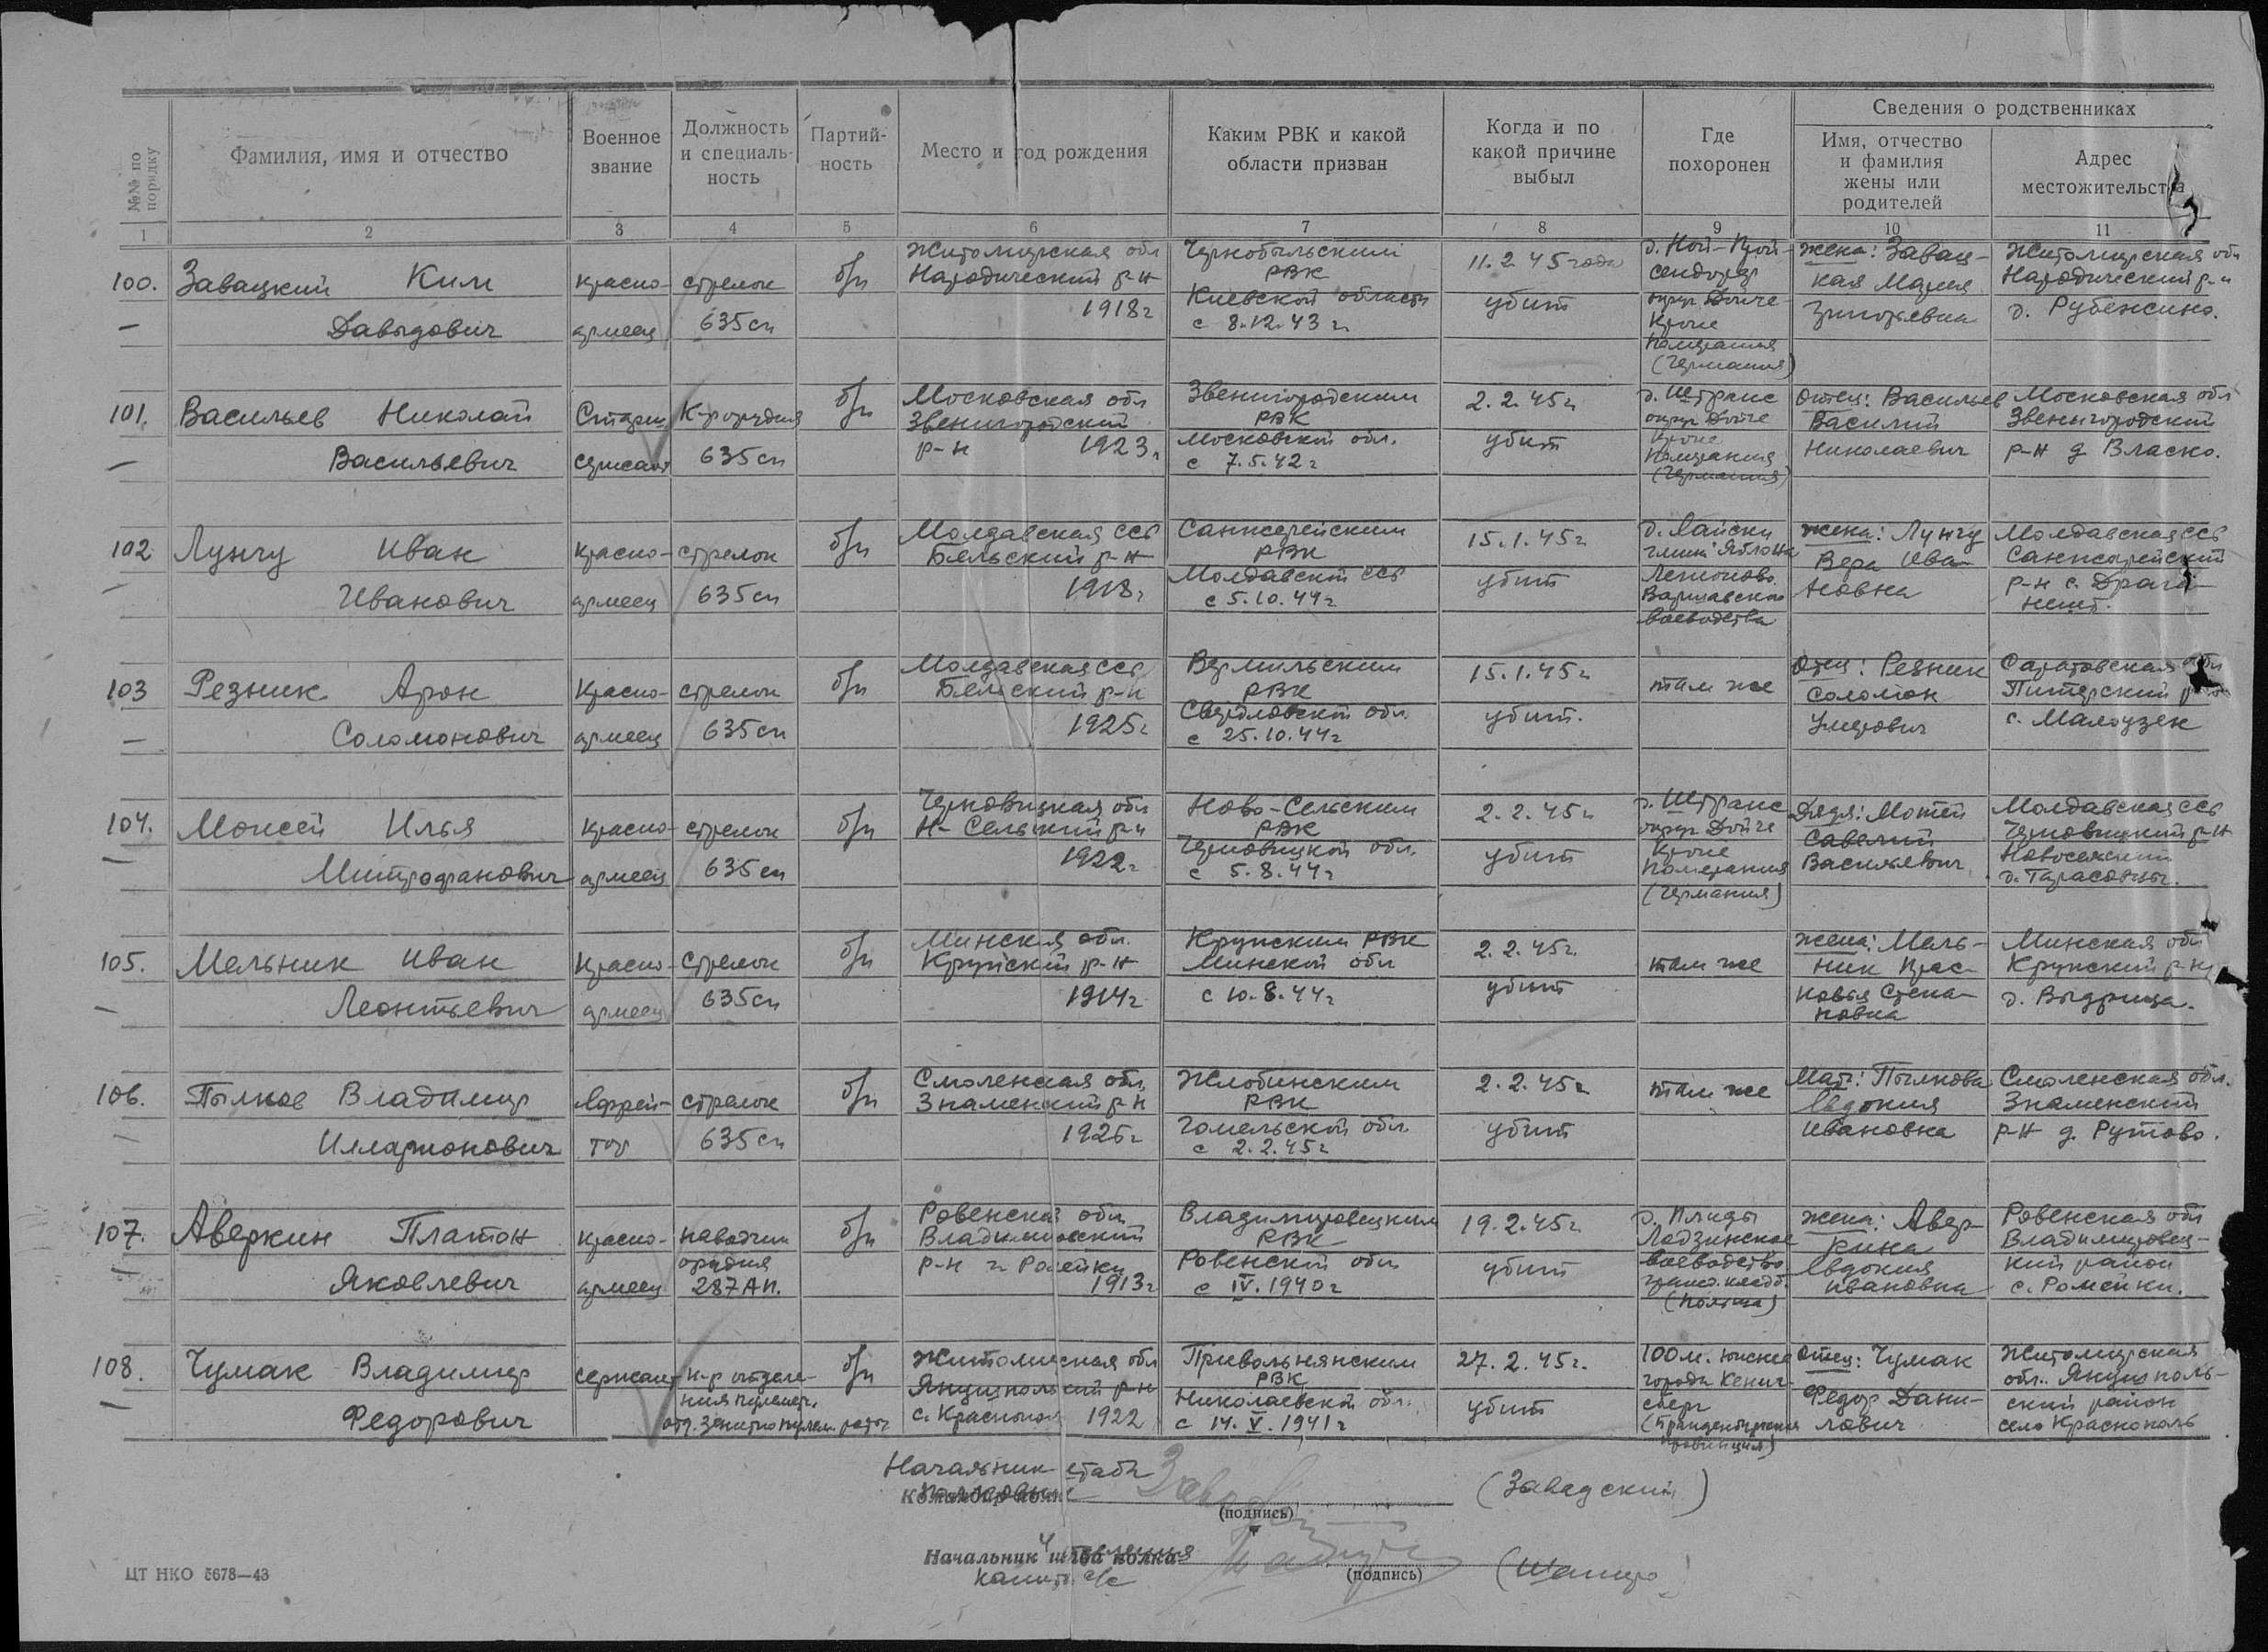 №№ по порядку
Фамилия, имя и отчество
Военное звание
Должность и специаль-ность
Партий-ность
Место и год рождения
Каким РВК и какой области призван
Когда и по какой причине выбыл
Где похоронен
Сведения о родственниках
Имя, отчество и фамилия жены или родителей
Адрес местожительства
1 2 3 4 5 6 7 8 9 10 11
100. Завацкий Ким
Давыдович
красно-
армеец
стрелок
635 сп
б/п
Житомирская обл
Народический р-н
1918г
Чернобыльским
РВК
Киевской области
с 8.12.43 г.
11.2.45 года
убит
округ Дойче-
Кроне
Померания
(Германия)
жена: Завац-
кая Мария
Григорьевна
Житомирская обл
Народический р-н
101. Васильев Николай
Васильевич
Старш
сержант
К-р орудия
635 сп
б/п
Московская обл
Звенигородский
р-н 1923г
Звенигородским
РВК
Московской обл.
с 7.5.42г
2.2.45г
убит
д. Штранс
округ Дойче
Кроне
Померания
(Германия)
отец: Васильев
Василий
Николаевич
Московская обл
Звенигородский
р-н д Власко.
102 Лунгу Иван
Иванович
красно-
армеец
стрелок
635 сп
б/п
Молдавская ССР
Бельский р-н
1918г
РВК
Молдавской ССР
с 5.10.44г
15.1.45г
убит
Варшавского
воеводства
жена: Лунгу
Вера Ива-
новна
Молдавская ССР
103 Резник Арон
Соломонович
Красно-
армеец
стрелок
635 сп
б/п
Молдавская ССР
Бельский р-н
1925г
РВК
Свердловской обл.
с 25.10.44г
15.1.45г
убит.
там же
отец: Резник
Соломон
Саратовская обл
Питерский р-н
с. Малоузек
104. Моисей Илья
Митрофанович
красно-
армеец
стрелок
635 сп
б/п
Черновицкая обл
Н-Сельский р-н
1922г
Ново-Сельским
РВК
Черновицкой обл.
с 5.8.44г
2.2.45г
убит
д. Штранс
округ Дойче
Кроне
Померания
(Германия)
Дядя:
Савелий
Васильевич
Молдавская ССР
Черновицкий р-н
Новосельский
105. Мельник Иван
Леонтьевич
Красно-
армеец
Стрелок
635 сп
б/п
Минская обл.
Крупский р-н
1914г
Крупским РВК
Минской обл
с 10.8.44г
2.2.45г.
убит
там же
жена: Мель-
ник Прас-
ковья Степа-
новна
Минская обл
Крупский р-н
д. Выдрица.
106. Пылков Владимир
Илларионович
Ефрей-
тор
стрелок
635 сп
б/п
Смоленская обл
Знаменский р-н
1926г
Жлобинским
РВК
Гомельской обл
с 2.2.45г
2.2.45г
убит
там же
Мать: Пылкова
Евдокия
Ивановна
Смоленская обл.
Знаменский
р-н д. Рутово.
107. Аверкин Платон
Яковлевич
красно-
армеец
наводчик
орудия
287 АП.
б/п
Ровенской обл
р-н
1913г
Владимирецким
РВК
Ровенской обл
с IV.1940г
19.2.45г
убит
Лодзинское
воеводство
(Польша)
жена: Авер-
кина
Евдокия
Ивановна
Ровенская обл
Владимирец-
кий район
с. Ромейки.
108. Чумак Владимир
Федорович
сержант
к-р отделе-
ния пулемет.
отд. зенитно пулем. роты
б/п
Житомирская обл
Янушпольский р-н
с. Краснополь 1922
Привольнянским
РВК
Николаевской обл.
с 14.V.1941г
27.2.45г.
убит
100 м. южнее
города Кениг-
сберг
(Бранденбургская
провинция)
отец: Чумак
Федор Дани-
лович
Житомирская
обл. Янушполь-
ский район
село Краснополь
Начальник штаба
(Завадский)
(подпись)
Начальник штаба полка
(подпись)
ЦТ НКО 5678—43